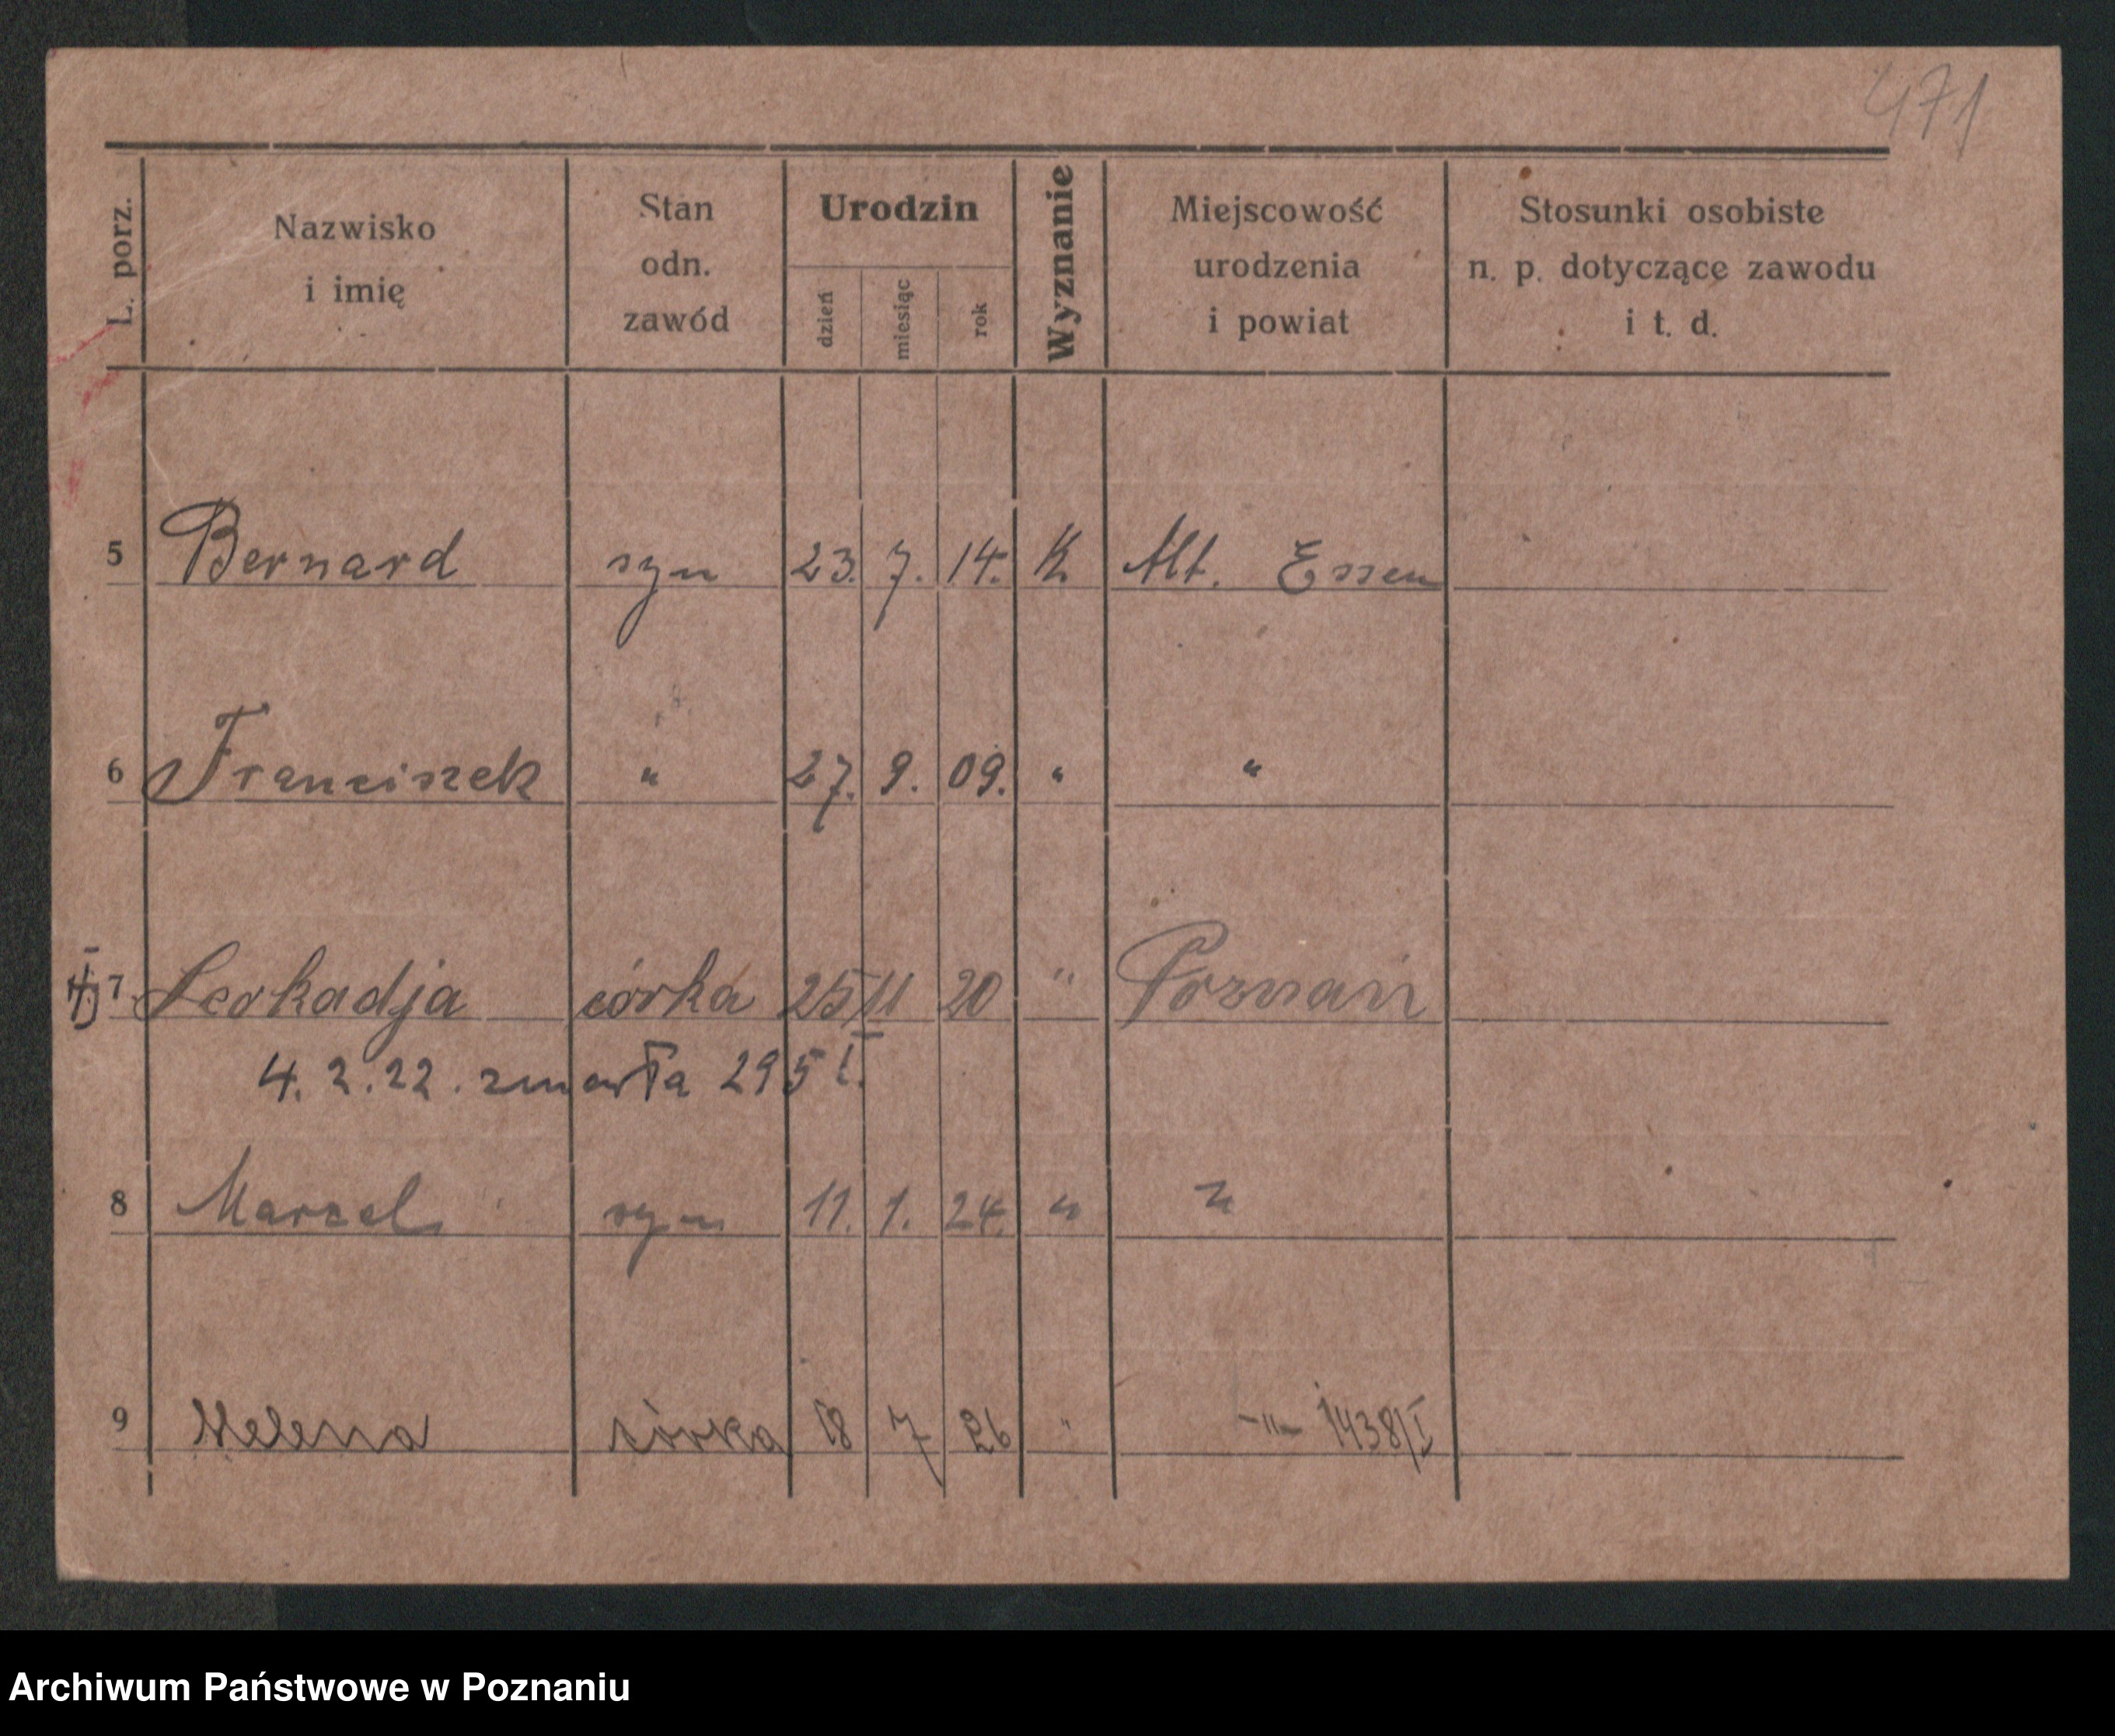 471
L. porz. Nazwisko i imię Stan odn. zawód Urodzin dzień miesiąc rok Wyznanie Miejscowość urodzenia i powiat Stosunki osobiste n. p. dotyczące zawodu i t. d.
5 Bernard syn 23. 7. 14. K. Alt. Essen
6 Franciszek " 27. 9. 09. " "
7 Leokadja córka 25 11 20 " Poznań
4. 2. 22. zmarła 295 I.
8 Marcel syn 11. 1. 24. " "
9 Helena córka 18 7 26 " -"- 1438/I
Archiwum Państwowe w Poznaniu